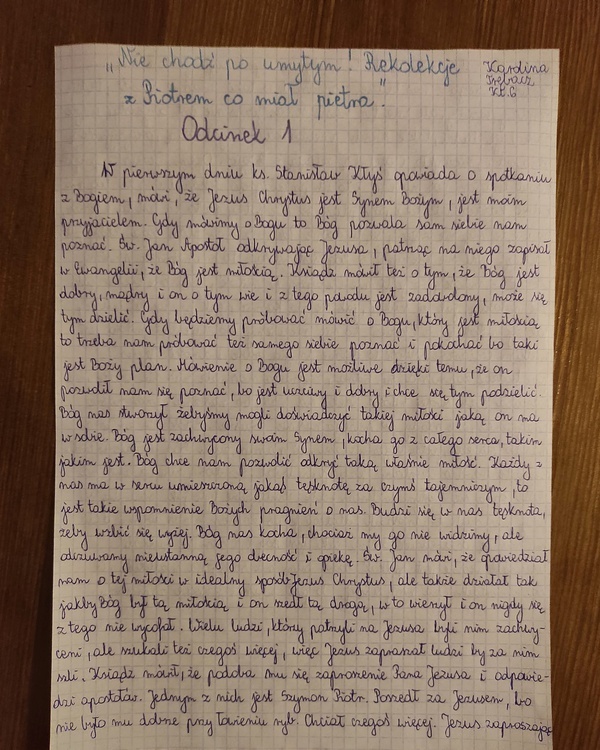 „Nie chodź po umytym! Rekolekcje
z Piotrem co miał pietra".
Karolina
Trębacz
Kl.6
Odcinek 1
W pierwszym dniu ks. Stanisław Kłyś opowiada o spotkaniu
z Bogiem, mówi, że Jezus Chrystus jest Synem Bożym, jest moim
przyjacielem. Gdy mówimy o Bogu to Bóg pozwala sam siebie nam
poznać. Św. Jan Apostoł odkrywając Jezusa, patrząc na niego zapisał
w Ewangelii, że Bóg jest miłością. Ksiądz mówił też o tym, że Bóg jest
dobry, mądry i on o tym wie i z tego powodu jest zadowolony, może się
tym dzielić. Gdy będziemy próbować mówić o Bogu, który jest miłością
to trzeba nam próbować też samego siebie poznać i pokochać bo taki
jest Boży plan. Mówienie o Bogu jest możliwe dzięki temu, że on
pozwolił nam się poznać, bo jest uczciwy i dobry i chce się tym podzielić.
Bóg nas stworzył żebyśmy mogli doświadczyć takiej miłości jaką on ma
w sobie. Bóg jest zachwycony swoim Synem, kocha go z całego serca, takim
jakim jest. Bóg chce nam pozwolić odkryć taką właśnie miłość. Każdy z
nas ma w sercu umieszczoną jakąś tęsknotę za czymś tajemniczym, to
jest takie wspomnienie Bożych pragnień o nas. Budzi się w nas tęsknota,
żeby wzbić się wyżej. Bóg nas kocha, chociaż my go nie widzimy, ale
odczuwamy nieustanną jego obecność i opiekę. Św. Jan mówi, że opowiedział
nam o tej miłości w idealny sposób Jezus Chrystus, ale także działał tak
jakby Bóg był tą miłością i on szedł tą drogą, w to wierzył i on nigdy się
z tego nie wycofał. Wielu ludzi, który patrzyli na Jezusa byli nim zachwy-
ceni, ale szukali też czegoś więcej, więc Jezus zapraszał ludzi by za nim
szli. Ksiądz mówił, że podoba mu się zaproszenie Pana Jezusa i odpowie-
dzi apostołów. Jednym z nich jest Szymon Piotr. Poszedł za Jezusem, bo
nie było mu dobrze przy łowieniu ryb. Chciał czegoś więcej. Jezus zapraszając